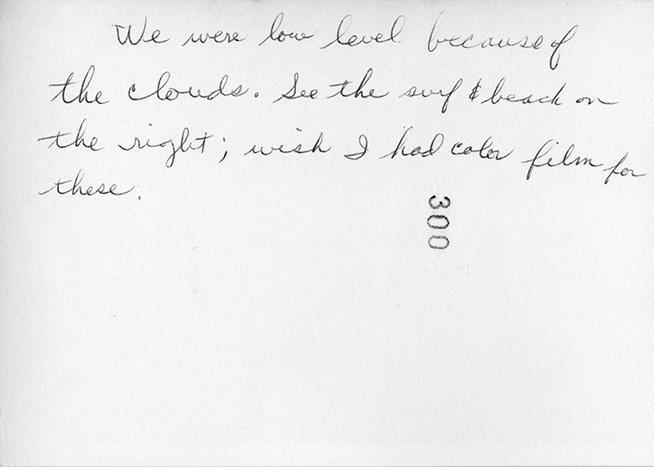 We were low level because of
the clouds. See the surf & beach on
the right; wish I had color film for
these.
300